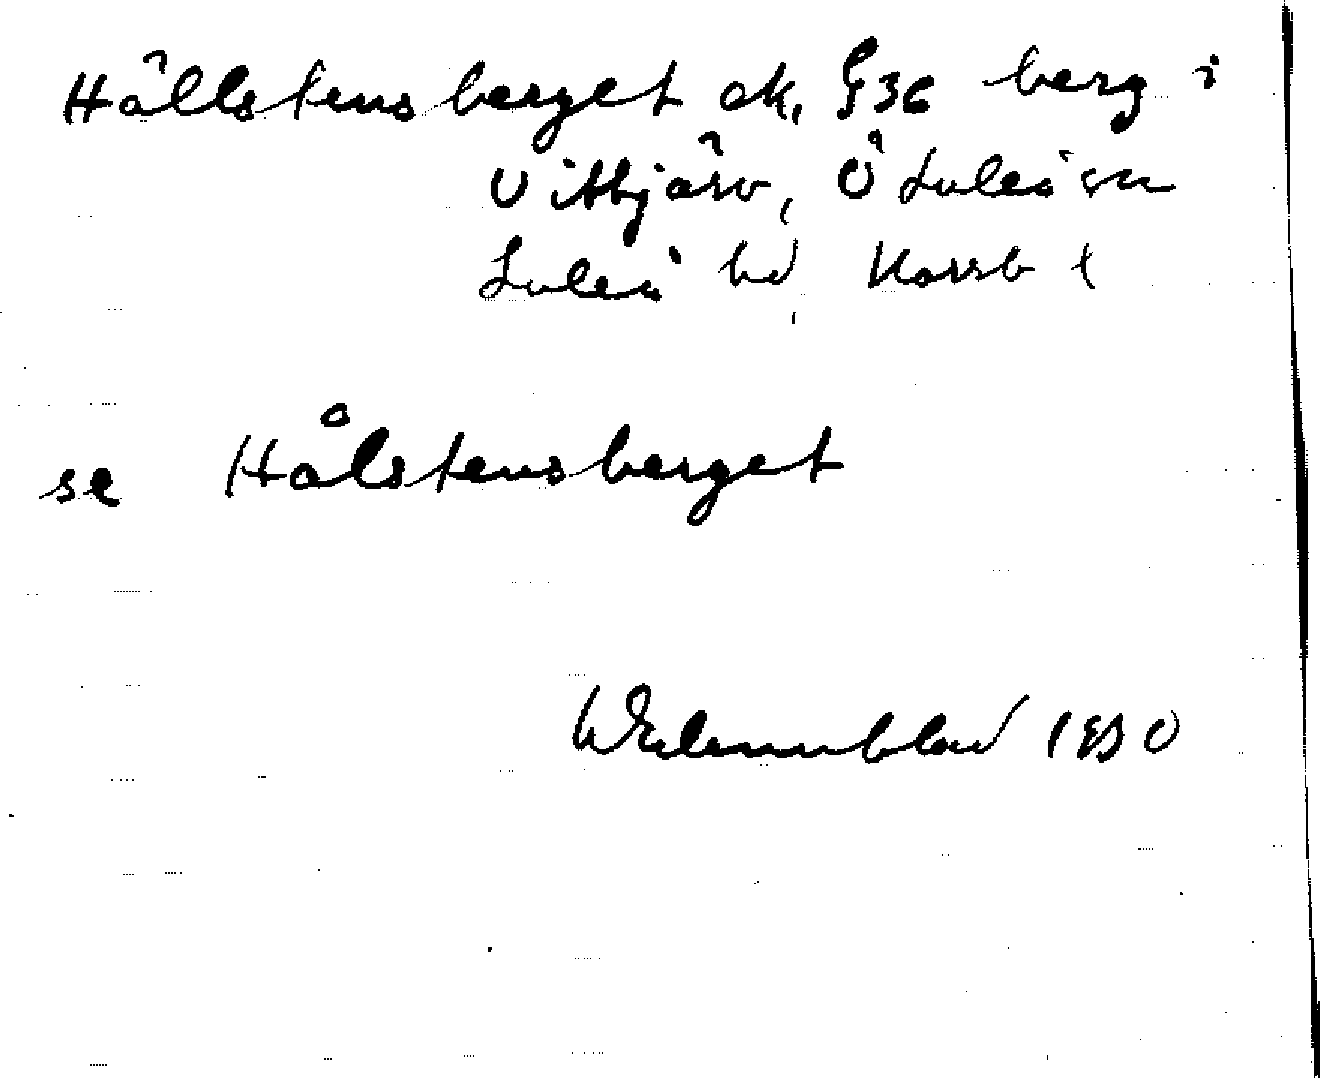 Hällstensberget ek. §36 berg i
Vittjärv, Ö Luleå sn
Luleå hd Norrb l
se Hålstensberget
1930